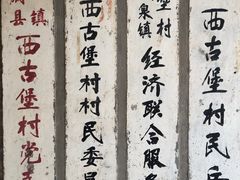 县镇
西古堡村党支
西古堡村村民委员
堡村
泉镇
经济联合服务
西古堡村民兵